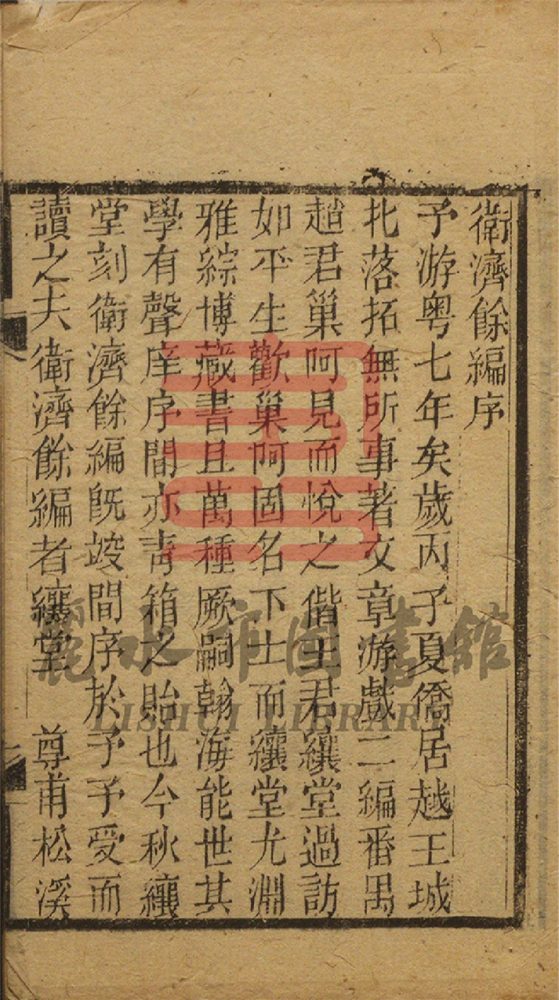 衛濟餘編序
予游粤七年矣歲丙子夏僑居越王城
北落拓無所事著文章游戲二編番禺
趙君巢阿見而悅之偕王君纕堂過訪
如平生歡巢阿固名下士而纕堂尤淵
雅綜博藏書且萬種厥嗣翰海能世其
學有聲庠序間亦靑箱之貽也今秋纕
堂刻衛濟餘編旣竣間序於予予受而
讀之夫衛濟餘編者纕堂 尊甫松溪
麗水市圖書館
LISHUI LIBRARY